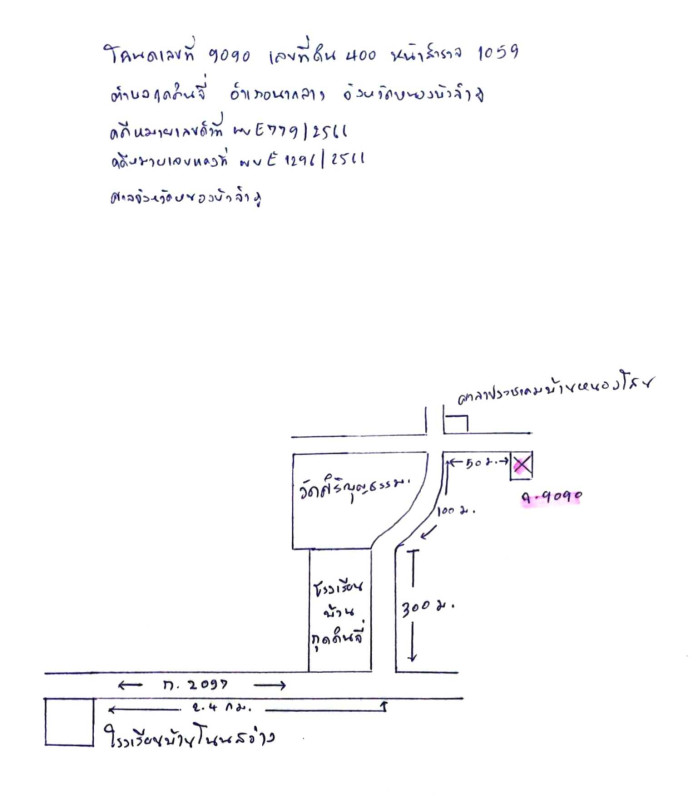 โฉนดเลขที่ 9090 เลขที่ดิน 400 หน้าสำรวจ 1059
ตำบลกุดดินจี่ อำเภอนากลาง จังหวัดหนองบัวลำภู
คดีหมายเลขดำที่ ผบE779/2561
คดีหมายเลขแดงที่ ผบE 1296/2561
ศาลจังหวัดหนองบัวลำภู
ศาลาประชาคมบ้านหนองโสน
50 ม.
วัดศิริบุญธรรม
ฉ.9090
100 ม.
โรงเรียน
บ้าน
กุดดินจี่
300 ม.
ท. 2097
2.4 กม.
โรงเรียนบ้านโนนสว่าง